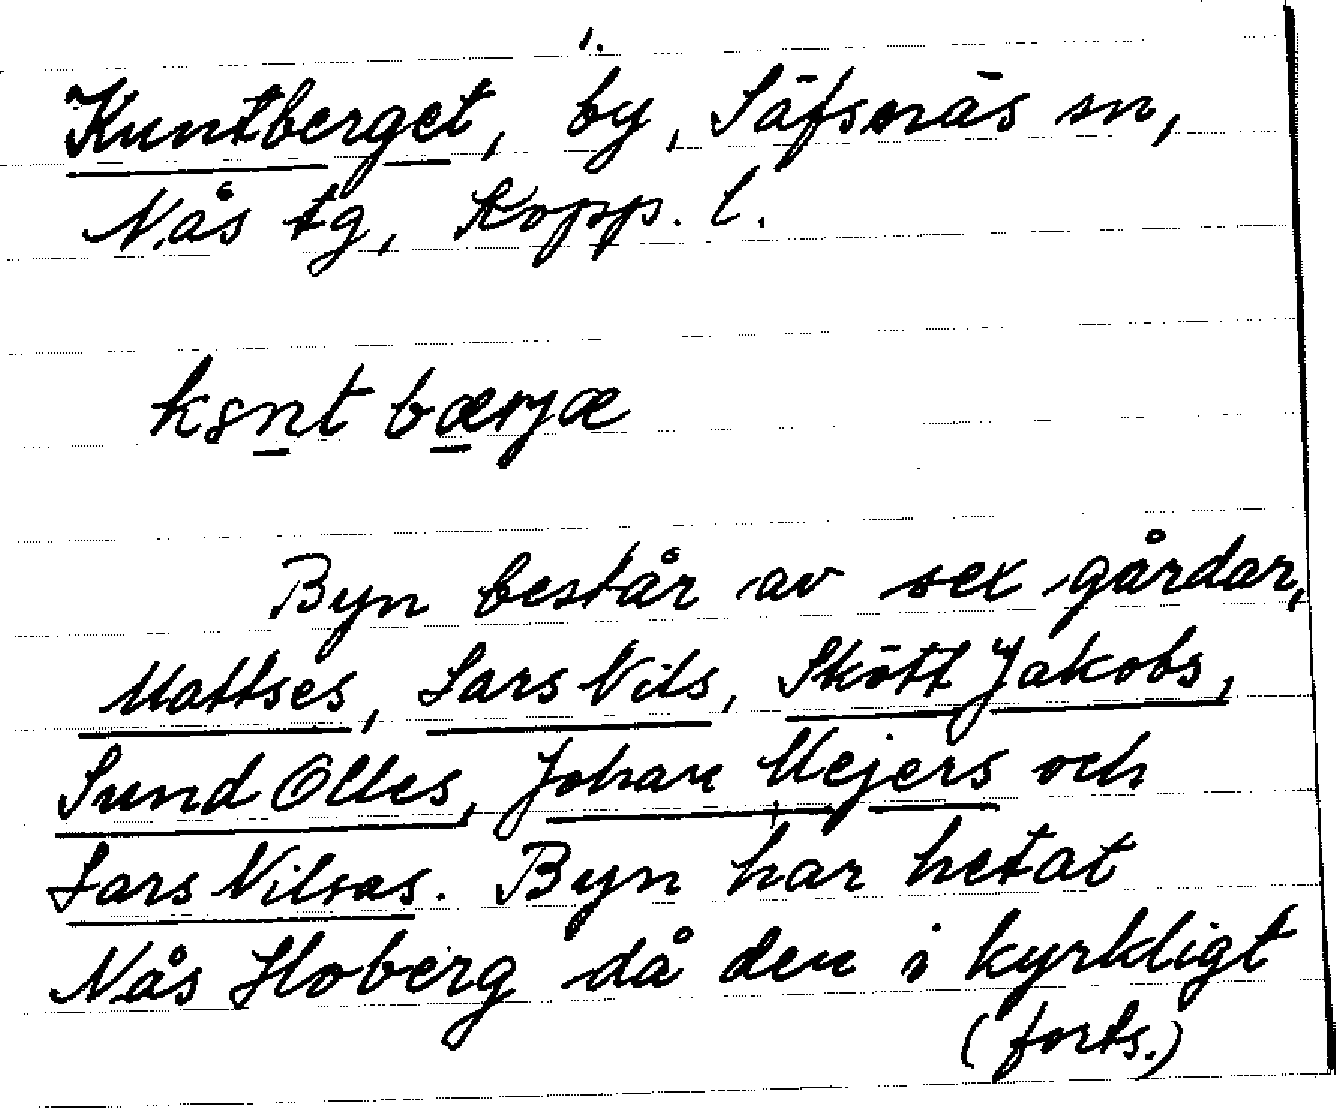 1.
Kuntberget, by, Säfsnäs sn,
Nås tg, Kopp. l.
Byn består av sex gårdar,
Mattses, Lars Nils, Skött Jakobs,
Sund Olles, Johan Mejers och
Lars Nilsas. Byn har hetat
Nås Hoberg då den i kyrkligt
(forts.)